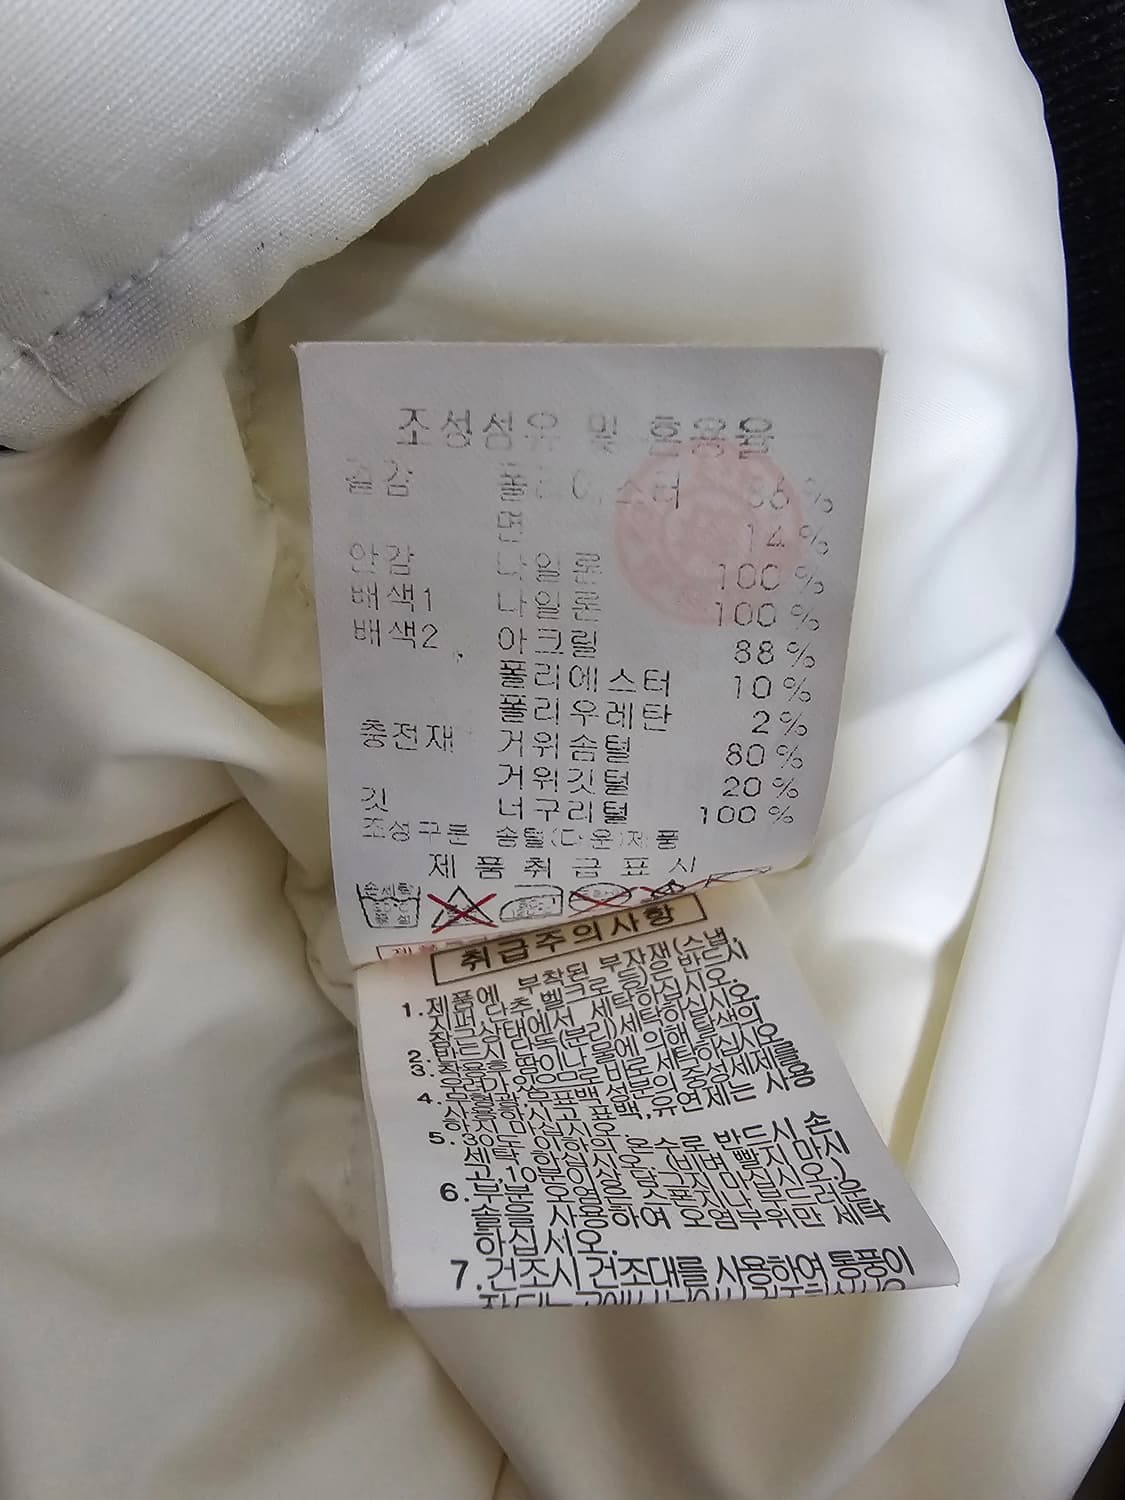 조성섬유 및 혼용율
겉감 폴리에스터 86%
면 14%
안감 나일론 100%
배색1 나일론 100%
배색2 아크릴 88%
폴리에스터 10%
폴리우레탄 2%
충전재 거위솜털 80%
거위깃털 20%
깃 너구리털 100%
조성구분 솜털(다운)제품
제품취급표시
손세탁
취급주의사항
1.제품에 부착된 부자재(스냅,
지퍼,단추,벨크로 등)은 반드시
잠근상태에서 세탁하십시오.
2.반드시 단독(분리)세탁하십시오.
3.착용후 땀이나 물에 의해 탈색의
우려가 있으므로 바로 세탁하십시오
4.무형광,무표백 성분의 중성세제를
사용하시고 표백,유연제는 사용
하지 마십시오.
5.30도 이하의 온수로 반드시 손
세탁 하십시오. (비벼 빨지 마시
고,10분이상 담그지 마십시오.)
6.부분 오염은 스폰지나 부드러운
솔을 사용하여 오염부위만 세탁
하십시오.
7.건조시 건조대를 사용하여 통풍이